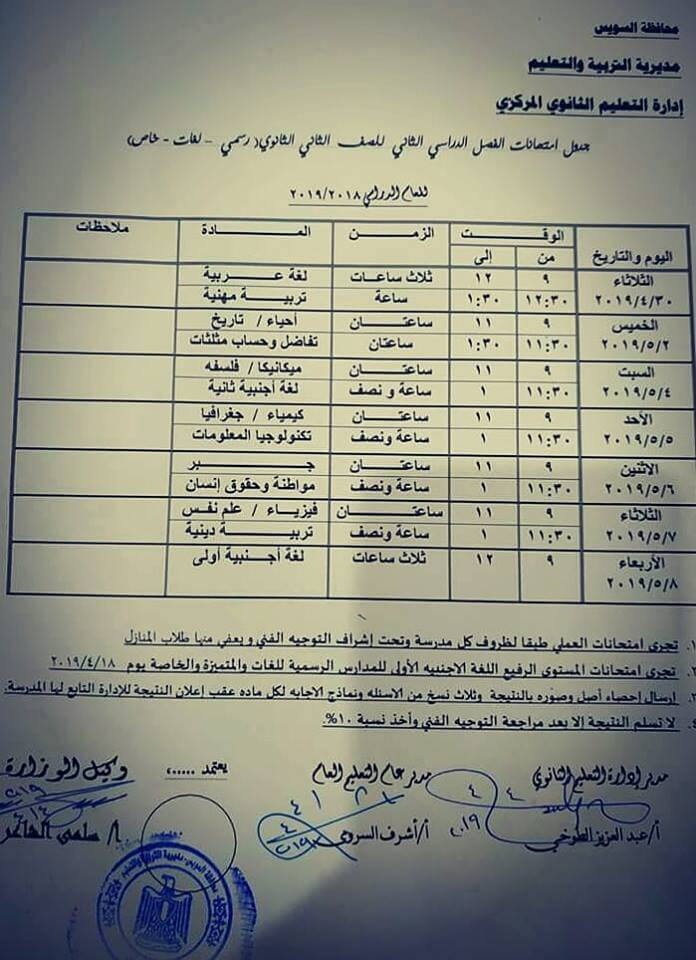 محافظة السويس
مديرية التربية والتعليم
إدارة التعليم الثانوي المركزي
جدول امتحانات الفصل الدراسي الثاني للصف الثاني الثانوي( رسمي - لغات - خاص)
للعام الدراسي ٢٠١٩/٢٠١٨
اليوم والتاريخ الوقت الزمن المادة ملاحظات
من إلى
الثلاثاء ٩ ١٢ ثلاث ساعات لغة عربية
٢٠١٩/٤/٣٠ ١٢:٣٠ ١:٣٠ ساعة تربية مهنية
الخميس ٩ ١١ ساعتان أحياء / تاريخ
٢٠١٩/٥/٢ ١١:٣٠ ١:٣٠ ساعتان تفاضل وحساب مثلثات
السبت ٩ ١١ ساعتان ميكانيكا / فلسفه
٢٠١٩/٥/٤ ١١:٣٠ ١ ساعة و نصف لغة أجنبية ثانية
الأحد ٩ ١١ ساعتان كيمياء / جغرافيا
٢٠١٩/٥/٥ ١١:٣٠ ١ ساعة ونصف تكنولوجيا المعلومات
الاثنين ٩ ١١ ساعتان جبر
٢٠١٩/٥/٦ ١١:٣٠ ١ ساعة ونصف مواطنة وحقوق إنسان
الثلاثاء ٩ ١١ ساعتان فيزياء / علم نفس
٢٠١٩/٥/٧ ١١:٣٠ ١ ساعة ونصف تربية دينية
الأربعاء ٩ ١٢ ثلاث ساعات لغة أجنبية أولى
٢٠١٩/٥/٨
١. تجرى امتحانات العملي طبقا لظروف كل مدرسة وتحت إشراف التوجيه الفني و يعفي منها طلاب المنازل
٢. تجرى امتحانات المستوى الرفيع اللغة الاجنبيه الأولى للمدارس الرسمية للغات والمتميزة والخاصة يوم ٢٠١٩/٤/١٨
٣. إرسال إحصاء أصل وصوره بالنتيجة وثلاث نسخ من الاسئله ونماذج الاجابه لكل ماده عقب إعلان النتيجة للإدارة التابع لها المدرسة.
٤. لا تسلم النتيجة إلا بعد مراجعة التوجيه الفني وأخذ نسبة ١٠%.
مدير إدارة التعليم الثانوي مدير عام التعليم العام يعتمد ،..... وكيل الوزارة
أ/عبد العزيز الطوخي أ/أشرف السروي أ/ سلمى